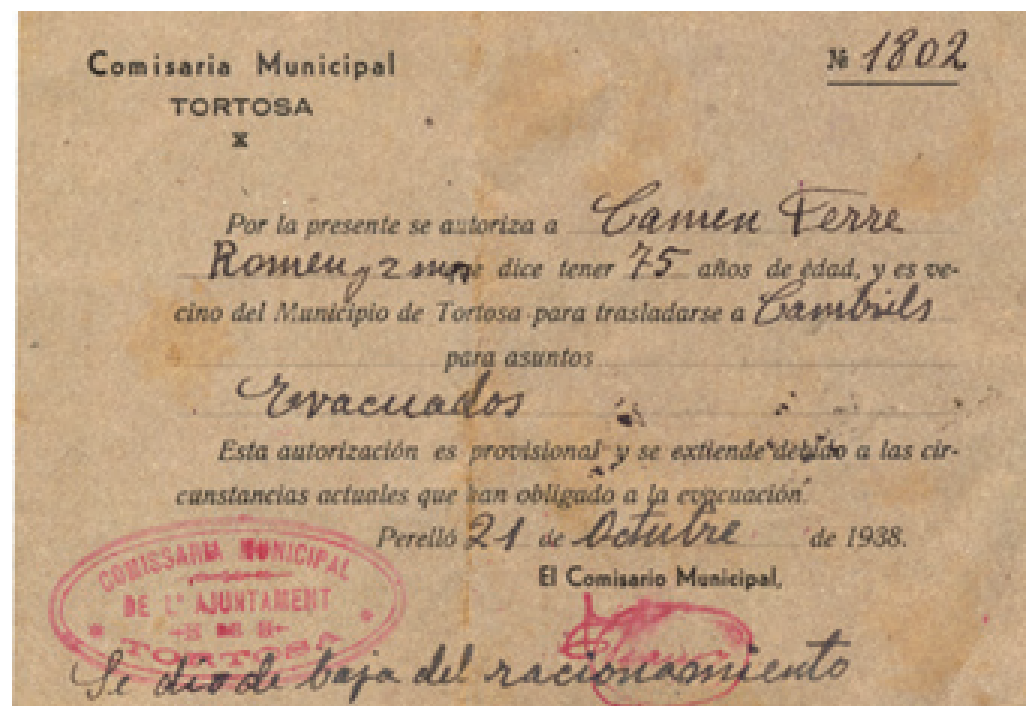 Comisaria Municipal
TORTOSA
№ 1802
Por la presente se autoriza a Camen Ferre
Romeu y 2 mas dice tener 75 años de edad, y es ve-
cino del Municipio de Tortosa para trasladarse a Cambrils
para asuntos
Evacuados
Esta autorización es provisional y se extiende debido a las cir-
cunstancias actuales que han obligado a la evacuación.
Perelló 21 de Octubre de 1938.
El Comisario Municipal,
COMISSARIA MUNICIPAL
DE L'AJUNTAMENT
DE
TORTOSA
Se dio de baja del racionamiento